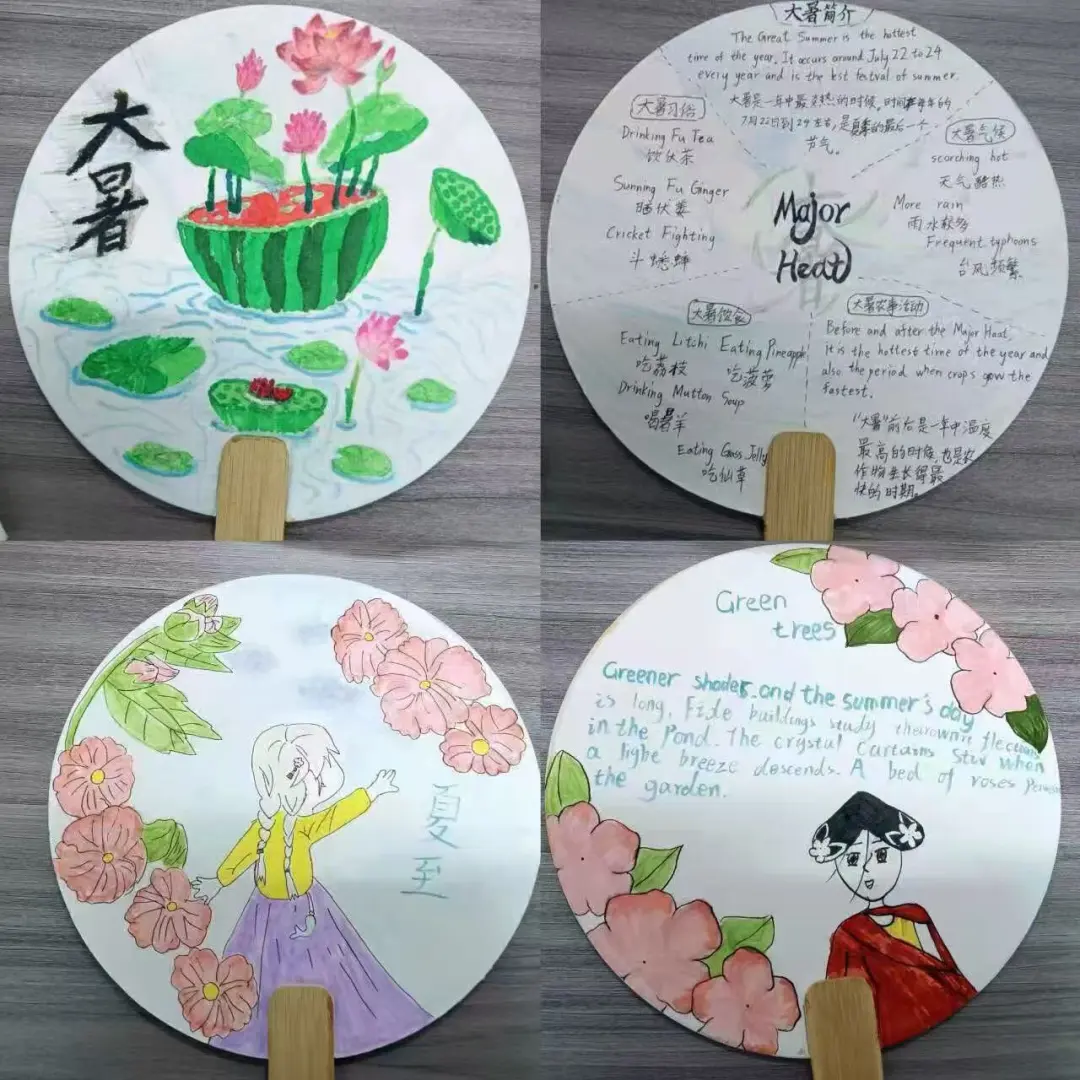 大暑
大暑简介
The Great Summer is the hottest
time of the year. It occurs around July 22 to 24
every year and is the lst festval of summer.
大暑是一年中最炎热的时候,时间每年的
7月22日到24左右,是夏季的最后一个
节气。
大暑习俗
Drinking Fu Tea
饮伏茶
Sunning Fu Ginger
晒伏姜
Cricket Fighting
斗蟋蟀
大暑气候
scorching hot
天气酷热
More rain
雨水较多
Frequent typhoons
台风频繁
Major
Heat
大暑饮食
Eating Litchi Eating Pineapple
吃荔枝 吃菠萝
Drinking Mutton Soup
喝暑羊
Eating Grass Jelly
吃仙草
大暑农事活动
Before and after the Major Heat,
It is the hottest time of the year and
also the period when crops grow the
fastest.
"大暑"前后是一年中温度
最高的时候,也是农
作物生长得最
快的时期。
夏
至
Green
trees
Greener shades. and the summer's day
is long, buildings study
in the Pond. The crystal Curtains Stir when
a lighe breeze descends. A bed of roses
the garden.